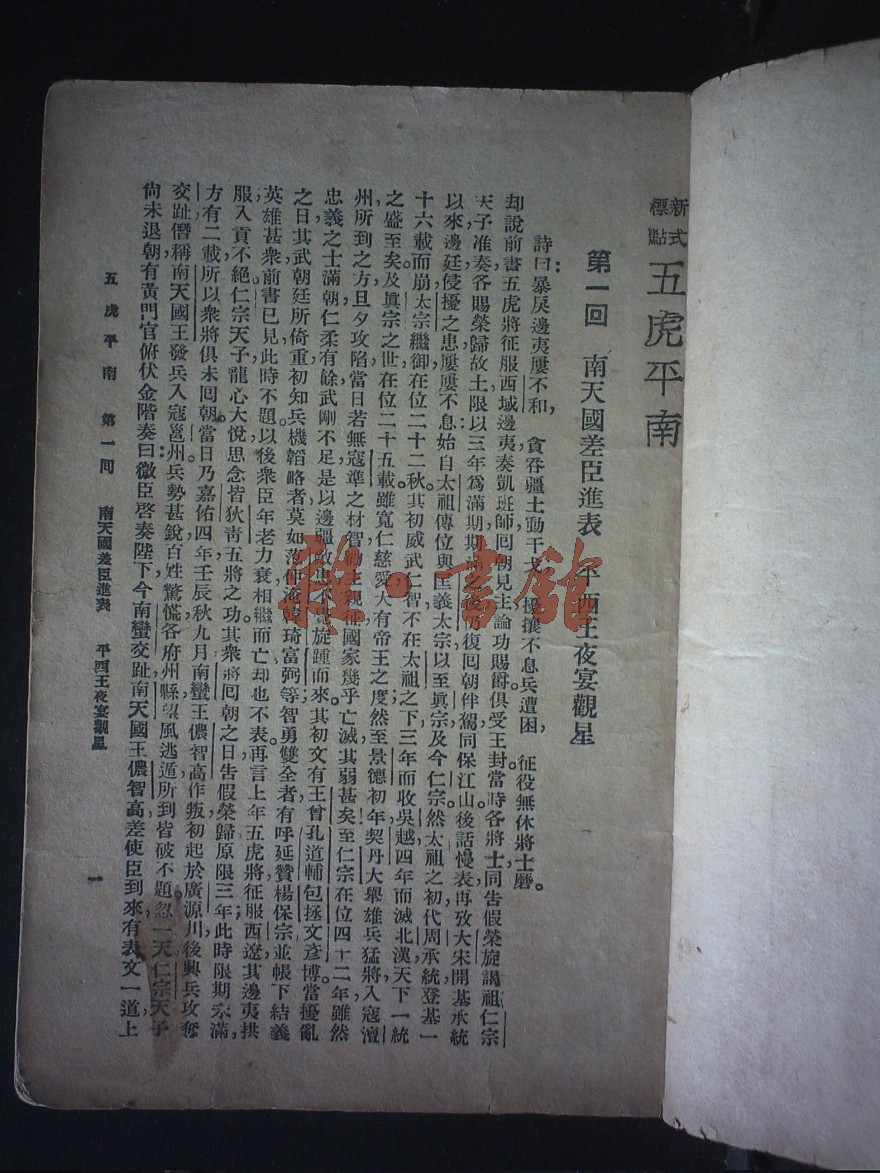 新式標點 五虎平南
第一回 南天國差臣進表 平西王夜宴觀星
詩曰：暴戾邊夷屢不和，貪吞疆土動干戈，擾攘不息兵遭困，征役無休將士磨。
却說前書五虎將征服西域邊夷，奏凱班師回朝見主，論功賜爵，俱受王封，當時各將士同告假榮旋謁祖，仁宗
天子准奏，各賜榮歸故土，限以三年爲滿期，期滿之後，乃復回朝伴駕，同保江山。後話慢表，再攷大宋開基承統
以來，邊廷侵擾之患，屢屢不息，始自太祖傳位與匡義太宗，以至眞宗及今仁宗，然太祖之初，代周承統，登基一
十六載而崩，太宗繼御，在位二十二秋。其初威武仁智，不在太祖之下，三年而收吳越，四年而滅北漢，天下一統
之盛至矣。及眞宗之世，在位二十五載，雖寬仁慈愛，大有帝王之度，然至景德初年，契丹大舉雄兵猛將，入寇澶
州，所到之方，旦夕攻陷，當日若無寇準之材智，勸主親征，國家幾乎亡滅，其弱甚矣。至仁宗在位四十二年，雖然
忠義之士滿朝，仁柔有餘，武剛不足，是以邊疆敵患，不旋踵而來。其初文有王曾孔道輔包拯文彥博，當擾亂
之日，其武朝廷所倚重，初知兵機韜略者，莫如范仲淹韓琦富弼等，智勇雙全者，有呼延贊楊保宗，並帳下結義
英雄甚衆，前書已見，此時不題，以後衆臣年老力衰，相繼而亡，却也不表。再言上年五虎將征服西遼，其邊夷拱
服，入貢不絕，仁宗天子龍心大悅，思念皆狄靑五將之功，其衆將回朝之日，告假榮歸，原限三年，此時限期未滿，
方有二載，所以衆將俱未回朝。當日乃嘉佑四年壬辰秋九月，南蠻王儂智高作叛，初起於廣源川，後興兵攻奪
交趾，僭稱南天國王，發兵入寇邕州，兵勢甚銳，百姓驚慌，各府州縣望風逃遁，所到皆破，不題。忽一天，仁宗天子
尙未退朝，有黃門官俯伏金階奏曰：微臣啓奏陛下，今南蠻交趾南天國王儂智高，差使臣到來，有表文一道，上
五虎平南 第一回 南天國差臣進表 平西王夜宴觀星 一
雅·書館